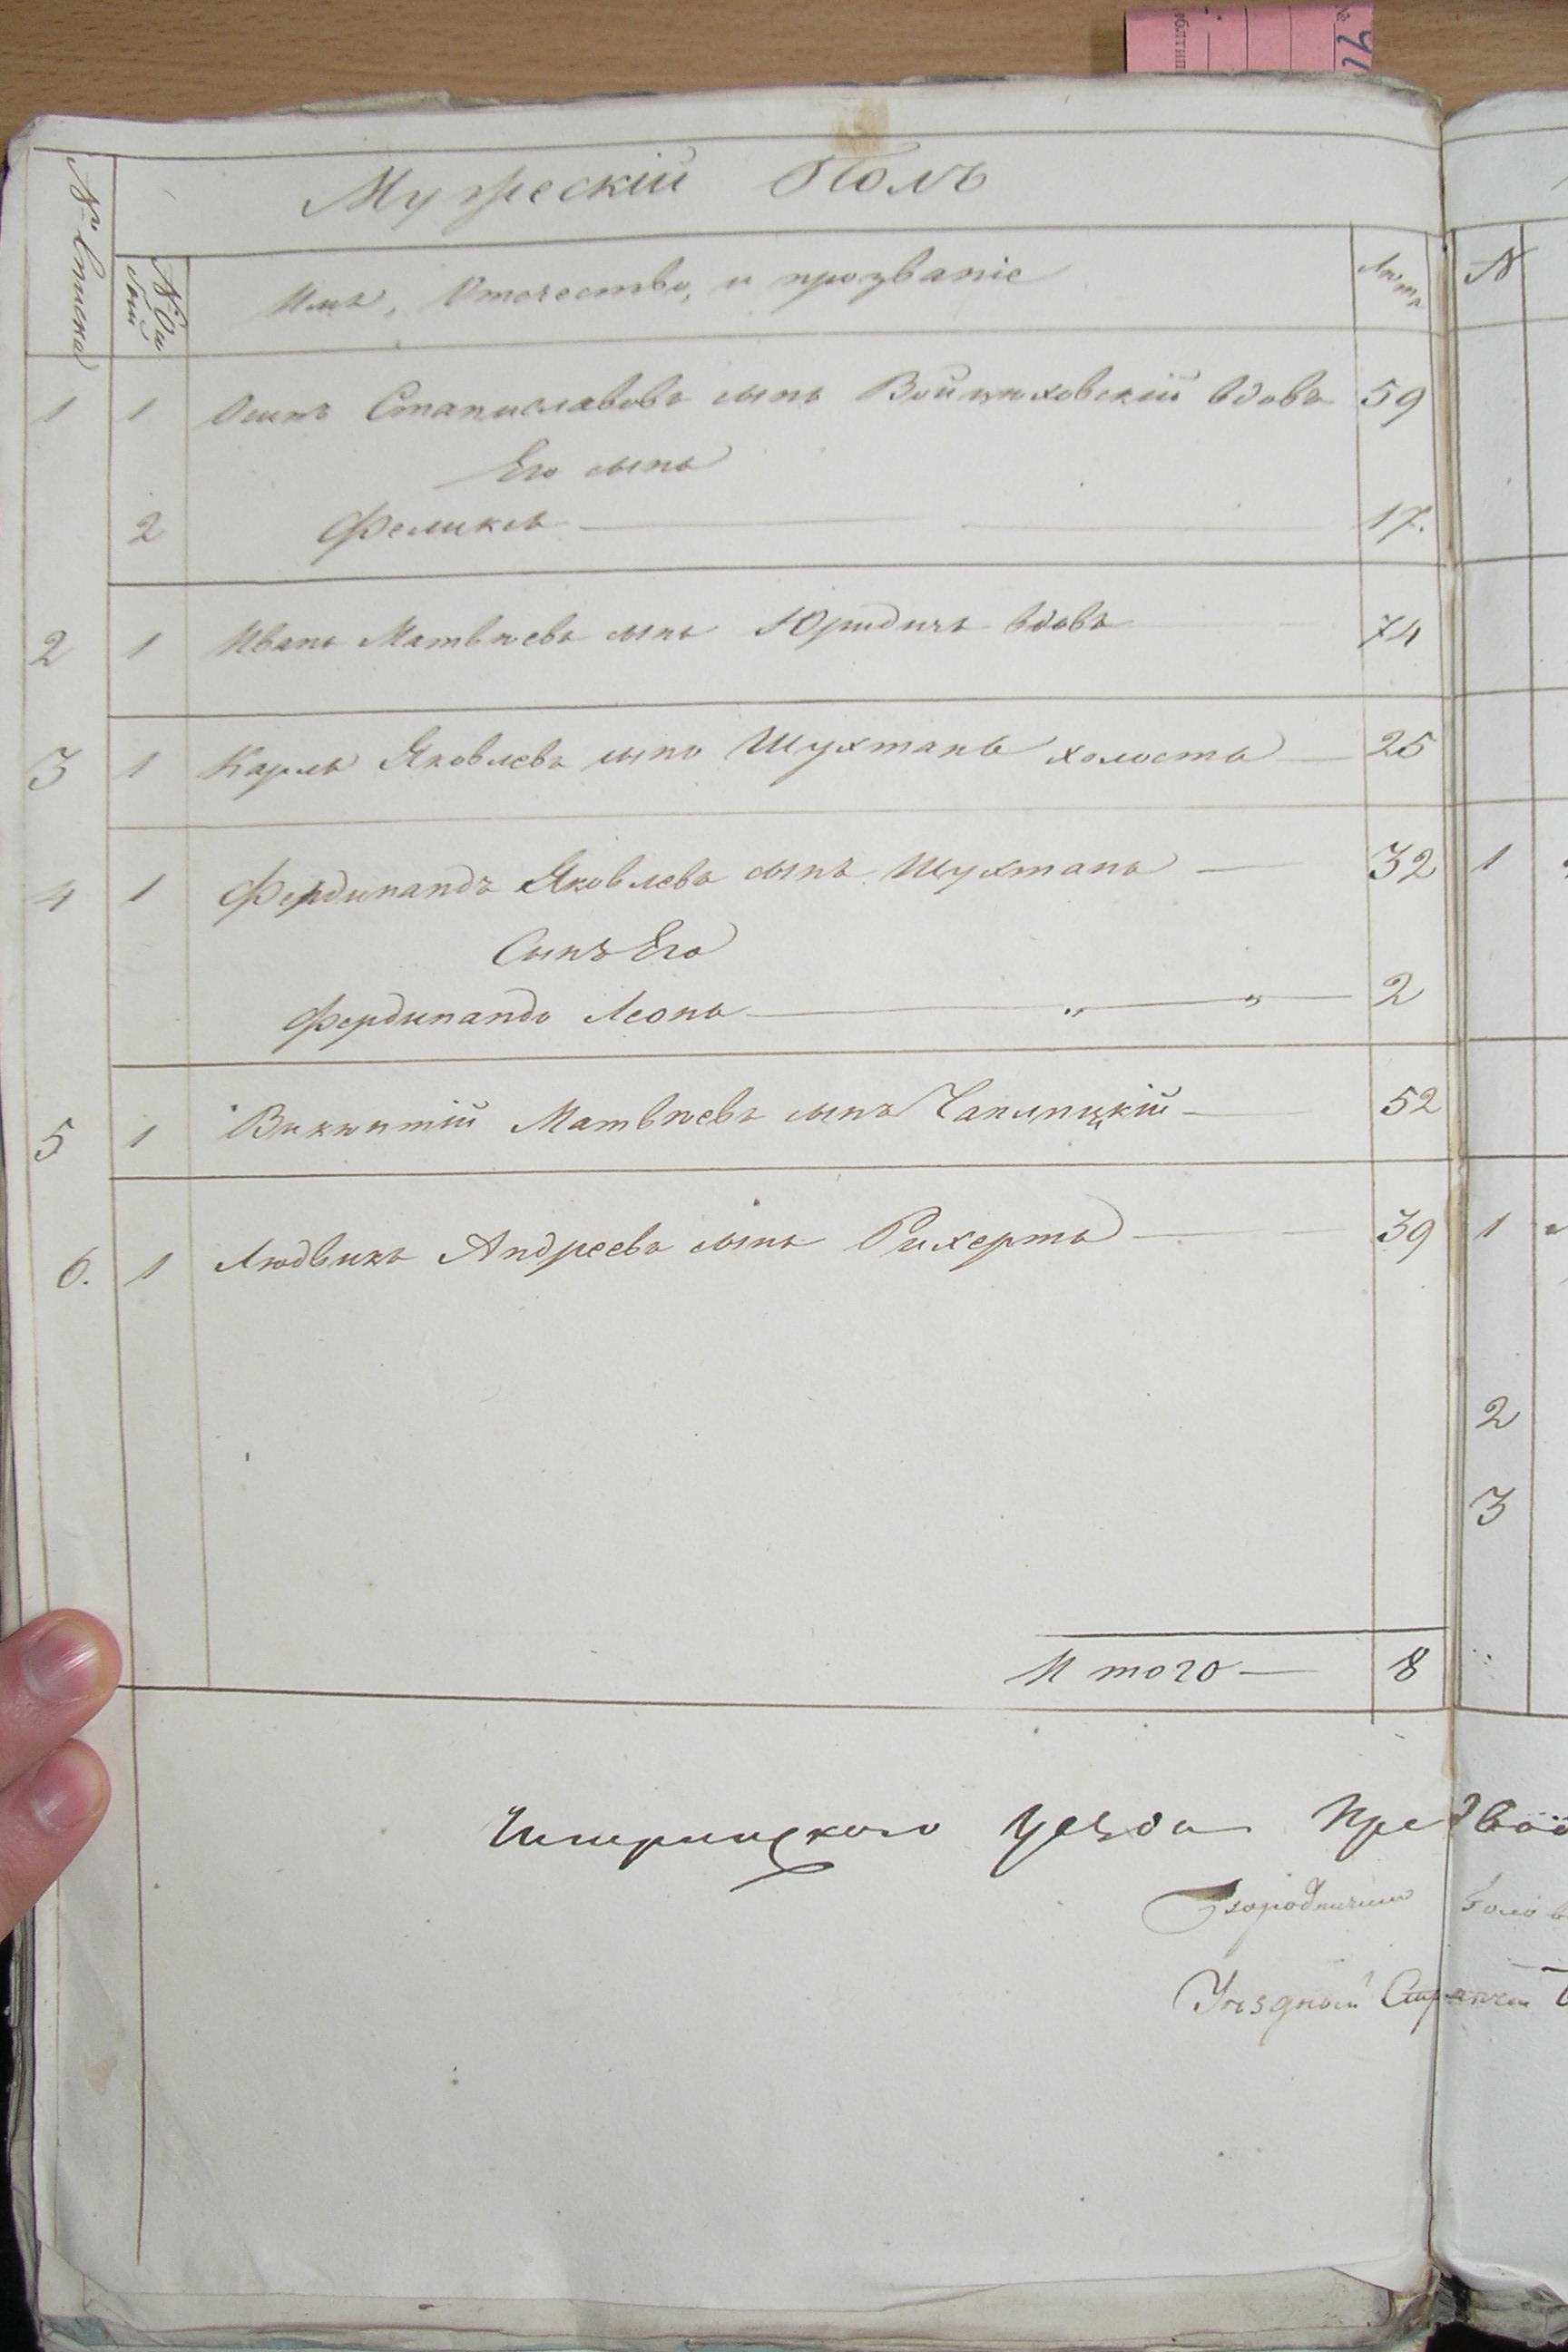 облтип
№ 41
Мужескій Полъ
№ Списка
№ Ош
бкій
Имя, Отечество, и прозваніе
Лѣта
№
1 1 Осипъ Станиславовъ сынъ Войцѣховскій вдовъ 59
Его сынъ
2 Феликсъ 17.
2 1 Иванъ Матвѣевъ сынъ Юридичъ вдовъ 74
3 1 Карлъ Яковлевъ сынъ Шухтанъ холостъ 25
4 1 Фердинандъ Яковлевъ сынъ Шухтанъ 32 1
Сынъ Его
Фердинандъ Леонъ 2
5 1 Викентій Матвѣевъ сынъ Чаплицкій 52
6. 1 Людвикъ Андреевъ сынъ Рихертъ 39 1
2
3
Итого 8
уезда Предвод
Городничий
Уѣздный Стряпчей